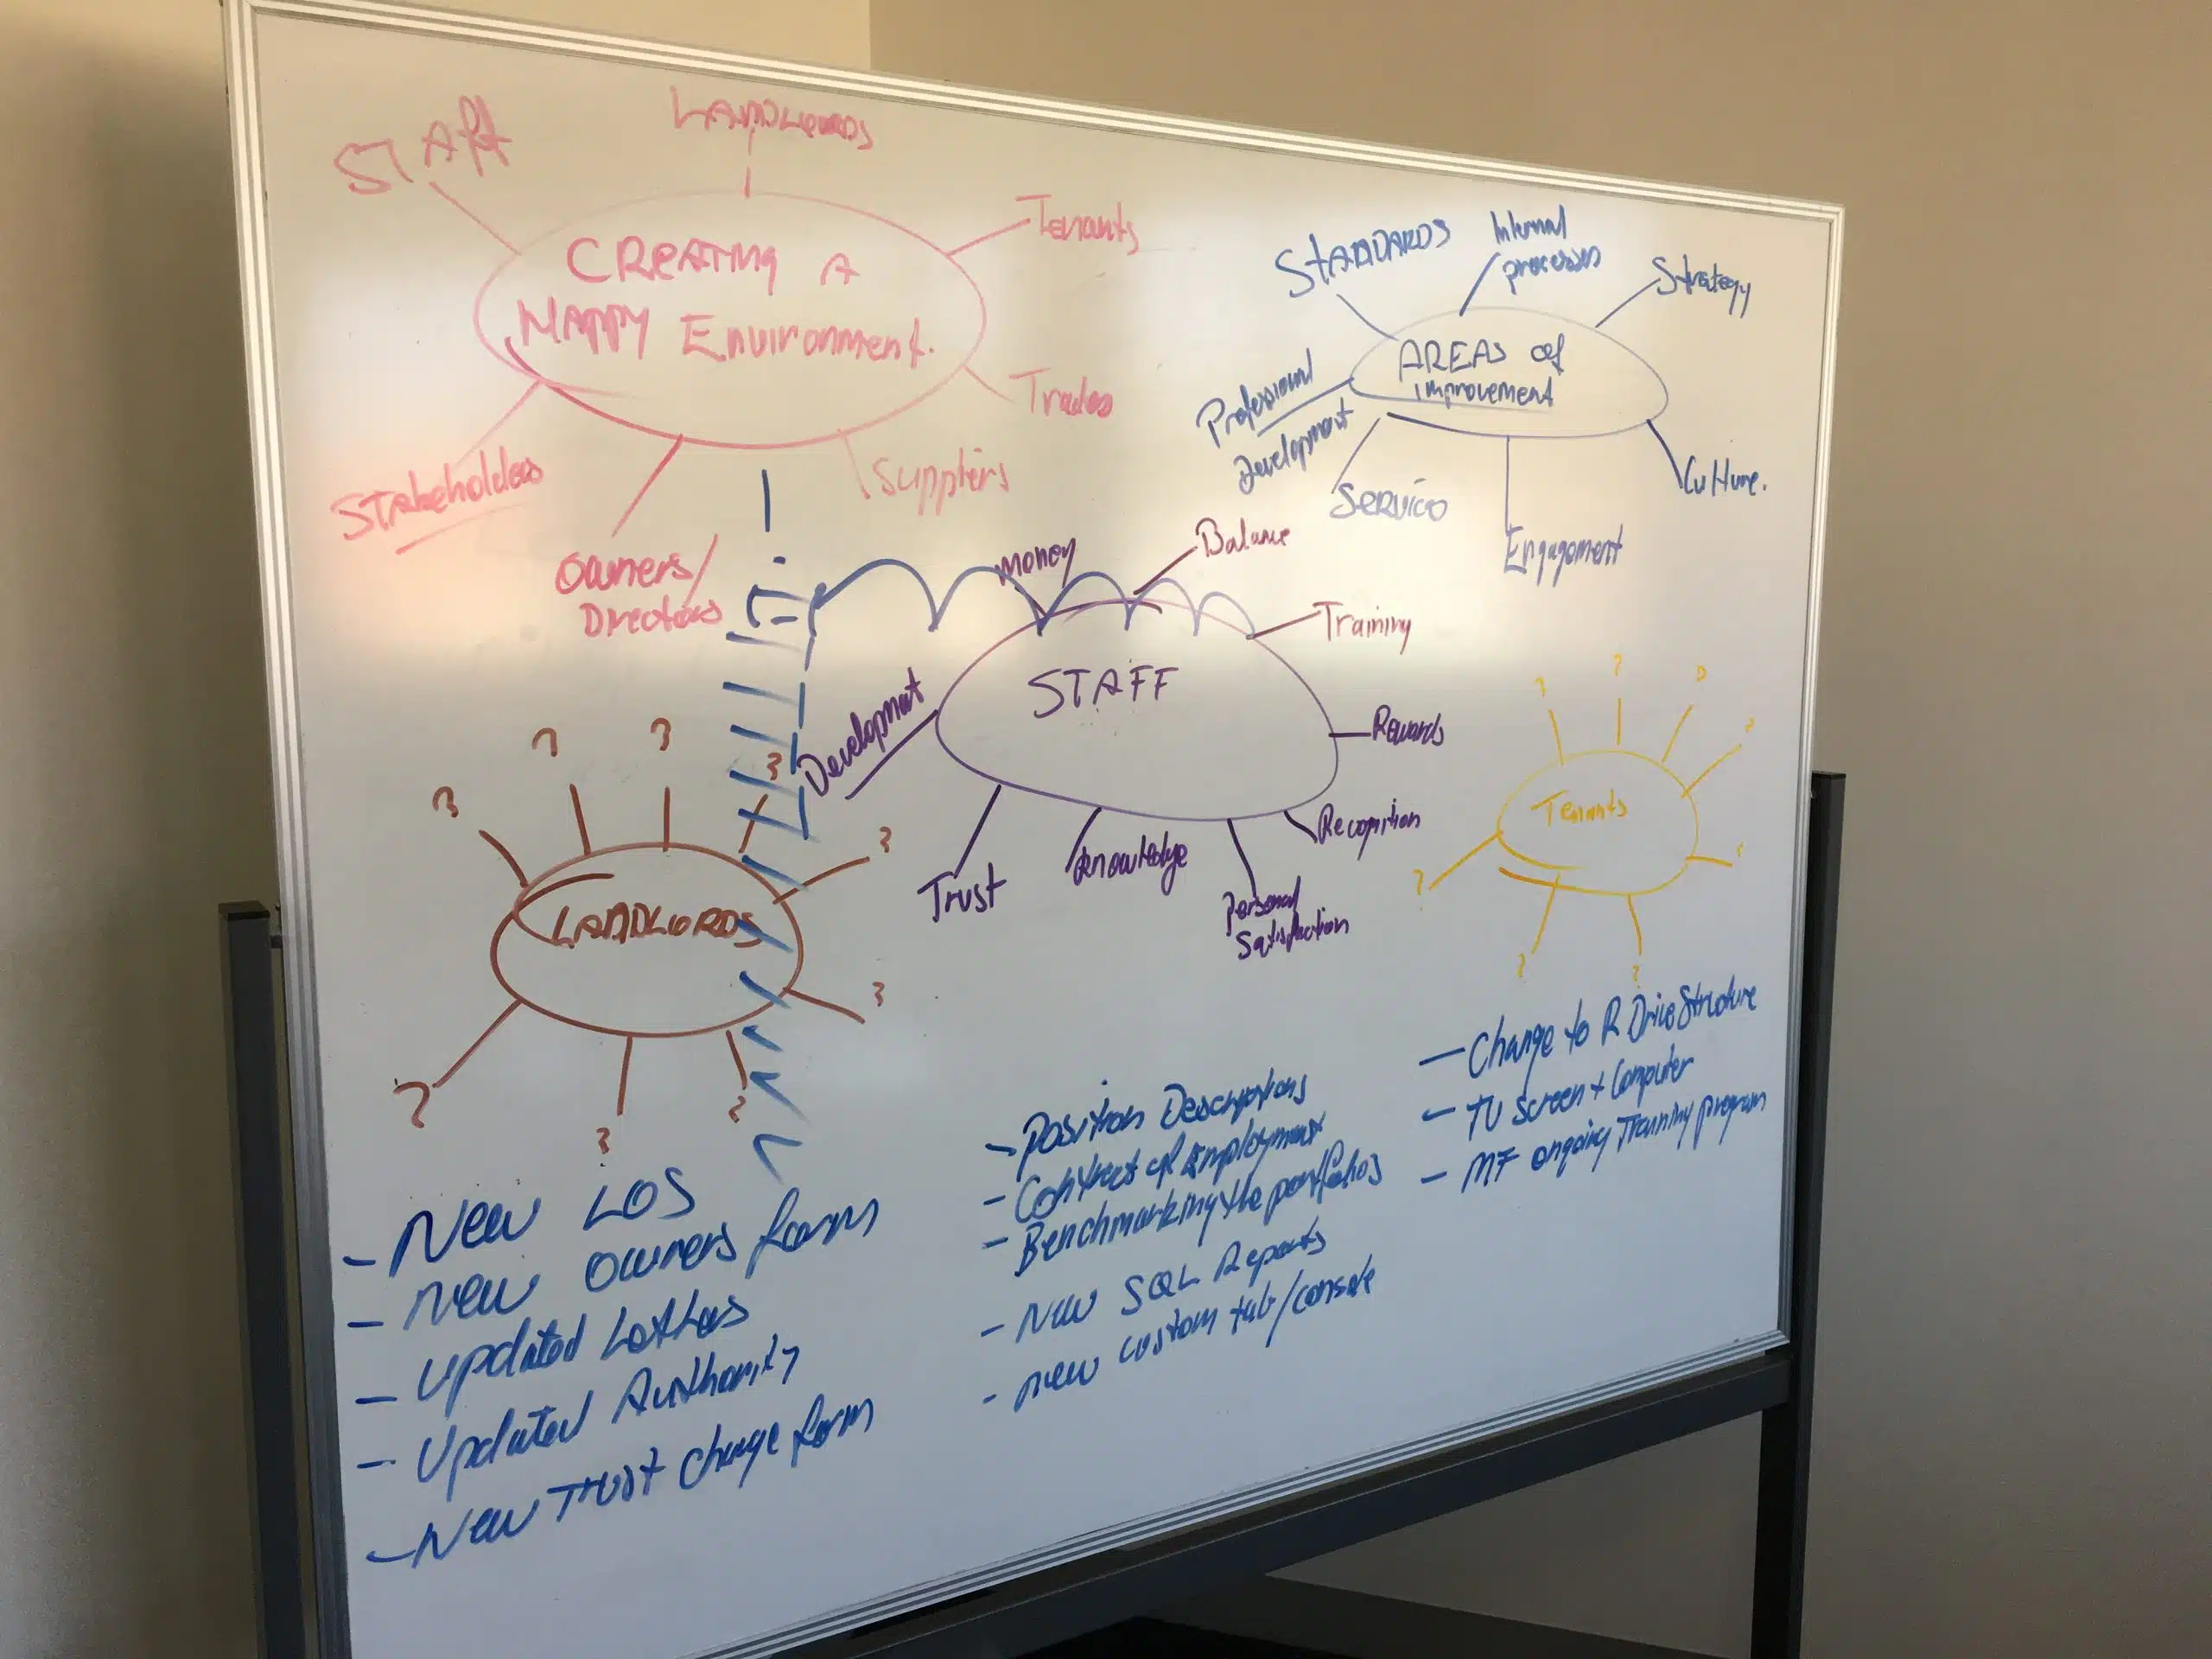 STAff
LANDLORDS
Tenants
CREATING A
HAPPY Environment.
Trades
Suppliers
Owners/
Directors
Stakeholders
STANDARDS
Internal
processes
Strategy
AREAS of
improvement
Professional
Development
Service
Engagement
Culture.
Money
Balance
Training
STAFF
Development
Rewards
Recognition
Personal
Satisfaction
Knowledge
Trust
?
?
?
?
?
LANDLORDS
?
?
?
?
?
?
?
?
Tenants
?
?
?
?
- New LOS
- New owners form
- Updated Letters
- Updated Authority
- New Trust Change form
- Position Descriptions
- Contract of Employment
- Benchmarking the portfolios
- New SQL Reports
- New custom tab/console
- Change to R Drive Structure
- TV Screen + Computer
- MF ongoing Training program